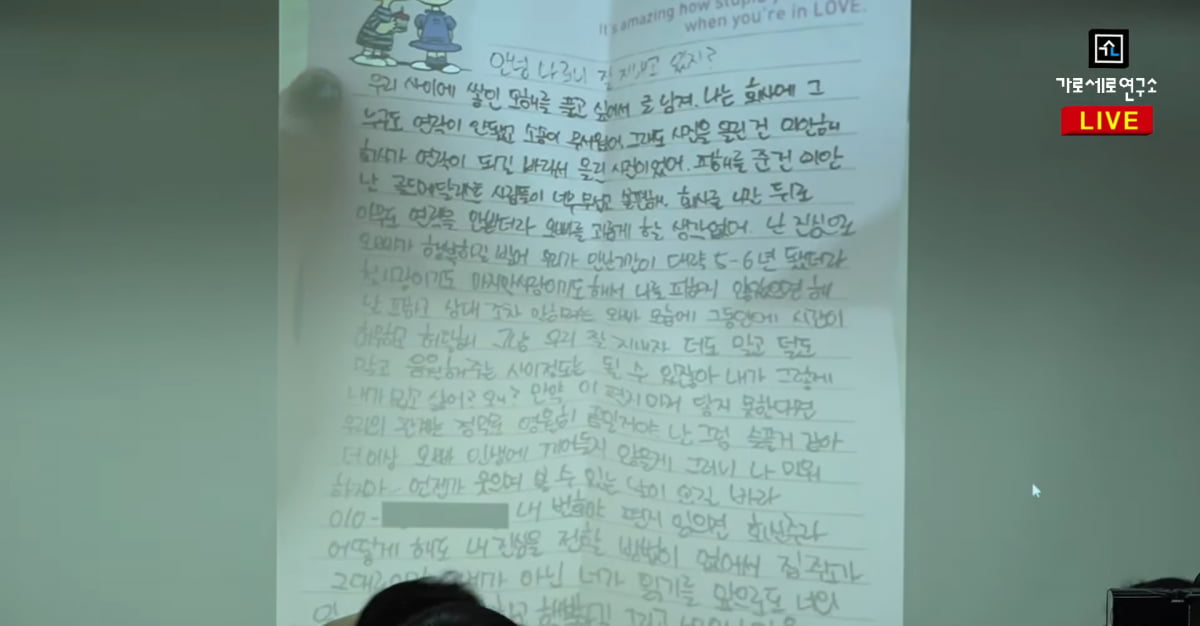 It's amazing how stupid
when you're in LOVE.
가로세로연구소
LIVE
안녕 나 잘 지내고 있지?
우리 사이에 쌓인 오해를 풀고 싶어서 글 남겨. 나는 회사에 그
누구도 연락이 안됐고 소송이 무서웠어 그래도 사진을 올린 건 미안해
회사가 연락이 되길 바라서 올린 사진이었어. 피해를 준건 미안
난 골드메달리스트 사람들이 너무 무섭고 불편해. 회사를 나간 뒤로
아무도 연락을 안받더라 오빠를 괴롭게 할 생각없어. 난 진심으로
오빠가 행복하길 빌어 우리가 만난기간이 대략 5-6년 됐더라
첫사랑이기도 마지막사랑이기도해서 나를 피하지 않았으면 해
난 피하고 상대 조차 안하려는 오빠 모습에 그동안에 시간이
허무하고 허탈해 그냥 우리 잘 지내자 더도 말고 덜도
말고 응원해주는 사이정도는 될 수 있잖아 내가 그렇게
내가 밉고 싫어? 왜? 만약 이 편지마저 닿지 못한다면
우리의 관계는 정말로 영원히 끝일거야 난 그럼 슬플거 같아
더이상 오빠 인생에 끼어들지 않을게 그러니 나 미워
하지마.. 언젠가 웃으며 볼 수 있는 날이 오길 바라
010- 내 번호야 편지 읽으면 회신주라
어떻게 해도 내 진심을 전할 방법이 없어서 집주소가
그대로 아닌 너가 읽기를 앞으로도 너의